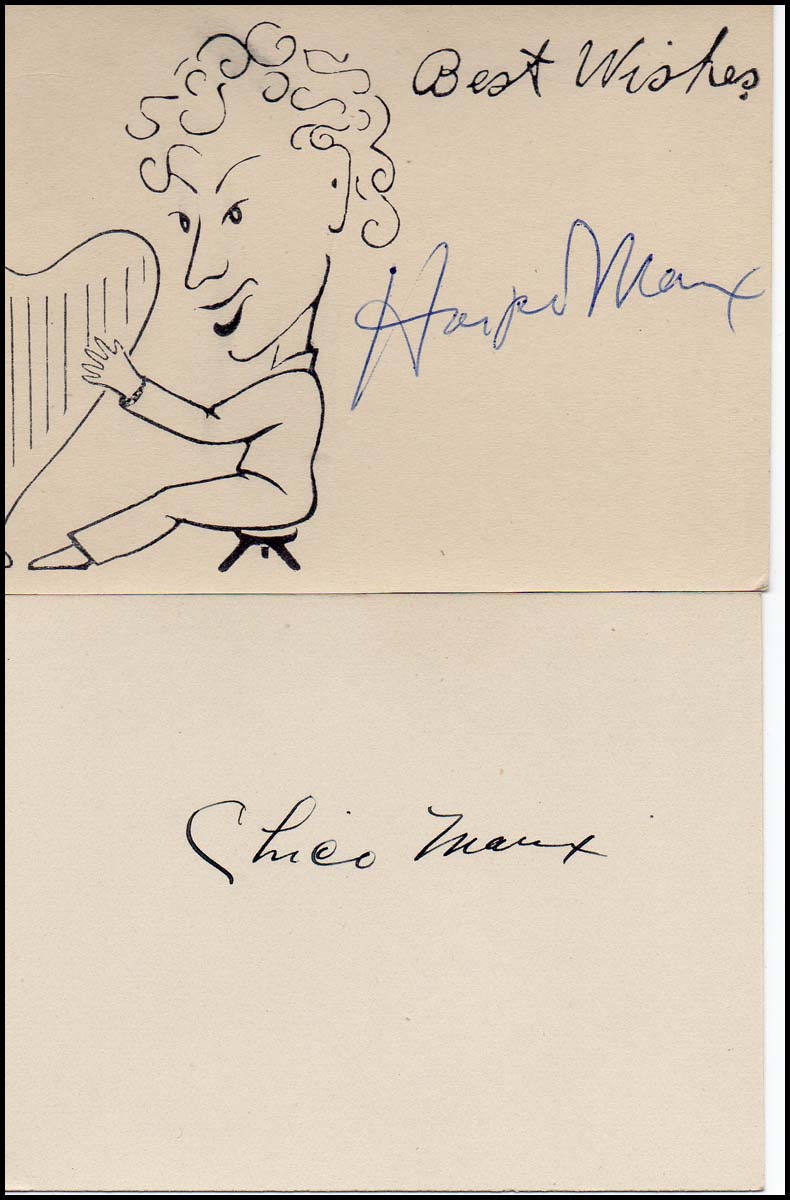 Best Wishes
Harpo Marx
Chico Marx